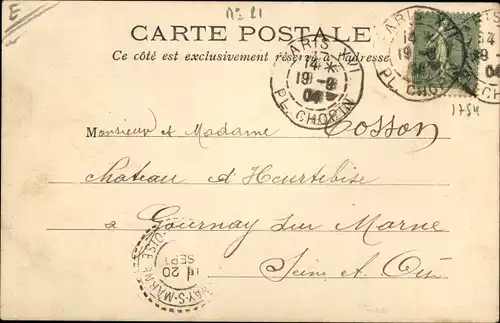 E
No 21
CARTE POSTALE
Ce côté est exclusivement réservé à l'adresse
PARIS XVI
14 *
19 -9
04
PL. CHOPIN
PARIS XVI
14
19 -9
04
PL. CHOPIN
1754
Monsieur et Madame Cosson
Chateau d'Heurtebise
a Gournay sur Marne
Seine et Oise
20
SEPT
NAY-S-MARNE
OISE